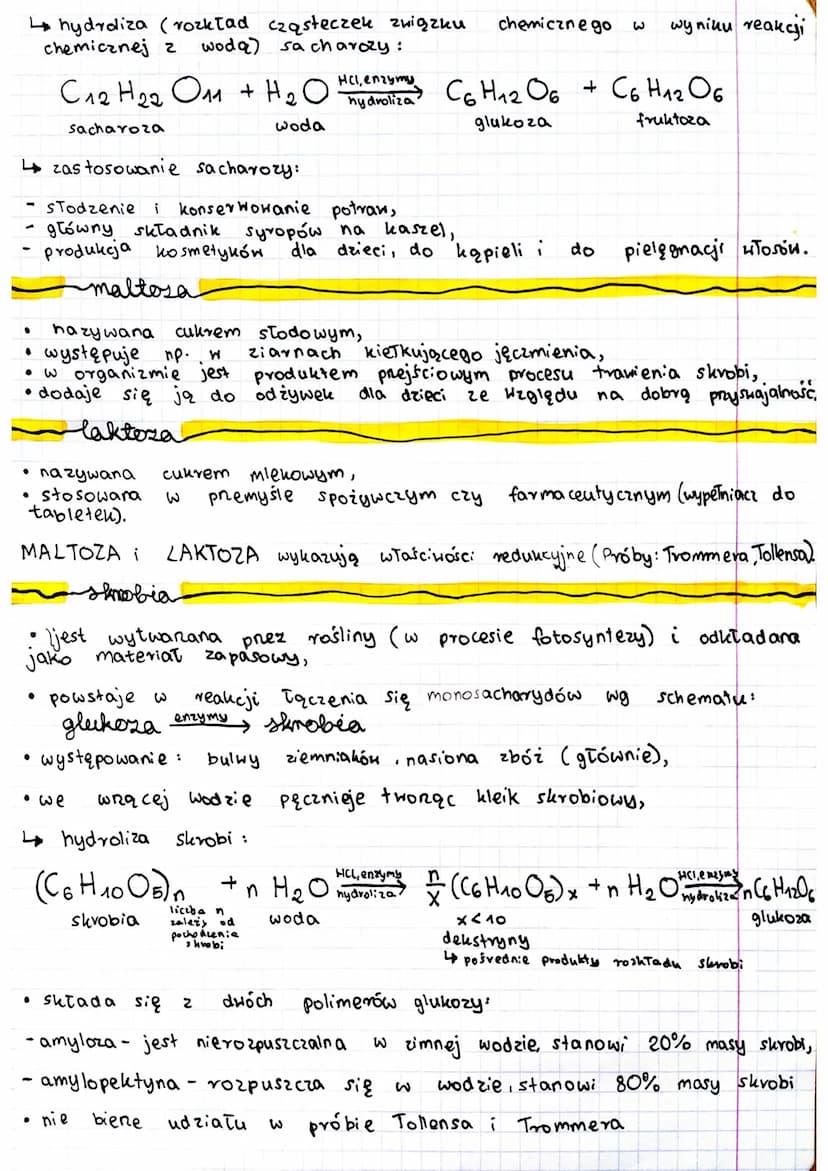 ↳ hydroliza (rozkład cząsteczek związku chemicznego w wyniku reakcji
chemicznej z wodą) sacharozy:
C12H22O11 + H2O HCl, enzymy hydroliza → C6H12O6 + C6H12O6
sacharoza woda glukoza fruktoza
↳ zastosowanie sacharozy:
- słodzenie i konserwowanie potraw,
- główny składnik syropów na kaszel,
- produkcja kosmetyków dla dzieci, do kąpieli i do pielęgnacji włosów.
maltoza
• nazywana cukrem słodowym,
• występuje np. w ziarnach kiełkującego jęczmienia,
• w organizmie jest produktem przejściowym procesu trawienia skrobi,
• dodaje się ją do odżywek dla dzieci ze względu na dobrą przyswajalność.
laktoza
• nazywana cukrem mlekowym,
• stosowana w przemyśle spożywczym czy farmaceutycznym (wypełniacz do
tabletek).
MALTOZA i LAKTOZA wykazują właściwości redukcyjne (Próby: Trommera, Tollensa)
skrobia
• jest wytwarzana przez rośliny (w procesie fotosyntezy) i odkładana
jako materiał zapasowy,
• powstaje w reakcji łączenia się monosacharydów wg schematu:
glukoza enzymy → skrobia
• występowanie: bulwy ziemniaków, nasiona zbóż (głównie),
• we wrącej wodzie pęcznieje tworząc kleik skrobiowy,
↳ hydroliza skrobi:
(C6H10O5)n + n H2O HCl, enzymy hydroliza → n/x (C6H10O5)x + n H2O HCl, enzymy hydroliza → n C6H12O6
skrobia liczba n zależy od pochodzenia skrobi woda x<10 glukoza
dekstryny
↳ pośrednie produkty rozkładu skrobi
• składa się z dwóch polimerów glukozy:
- amyloza - jest nierozpuszczalna w zimnej wodzie, stanowi 20% masy skrobi,
- amylopektyna - rozpuszcza się w wodzie, stanowi 80% masy skrobi
• nie bierze udziału w próbie Tollensa i Trommera